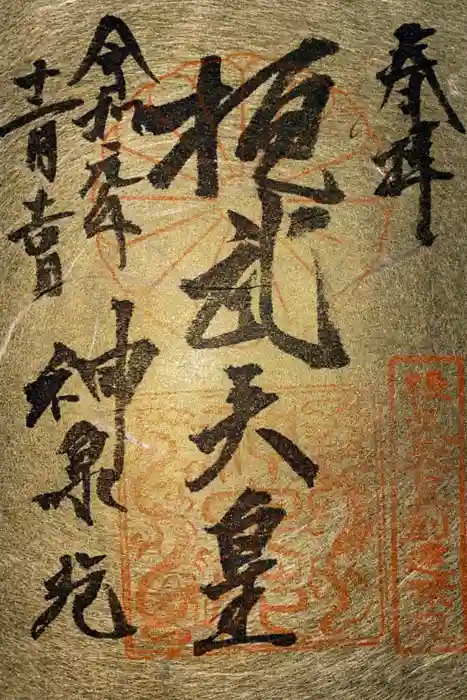 奉拝
桓武天皇
令和元年
十二月吉日
神泉苑